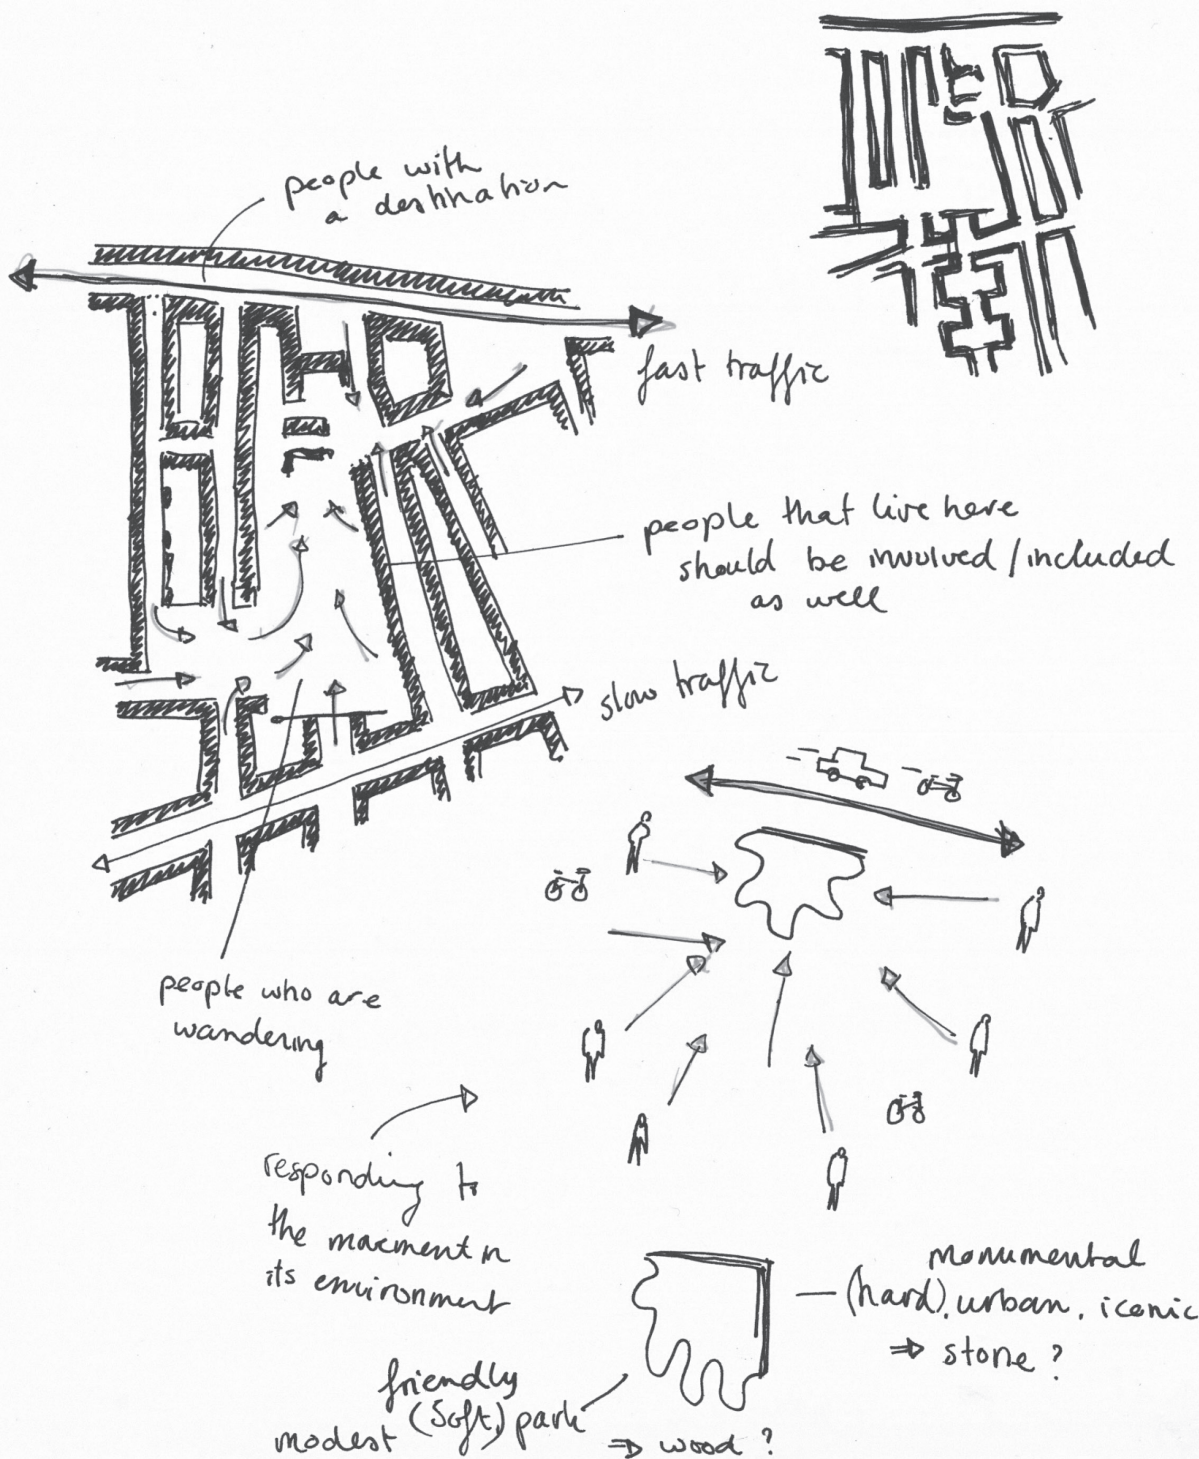 people with
a destination
fast traffic
people that live here
should be involved / included
as well
slow traffic
people who are
wandering
responding to
the
its environment
monumental
(hard), urban, iconic
⇒ stone ?
friendly
(Soft,) park
modest
⇒ wood ?